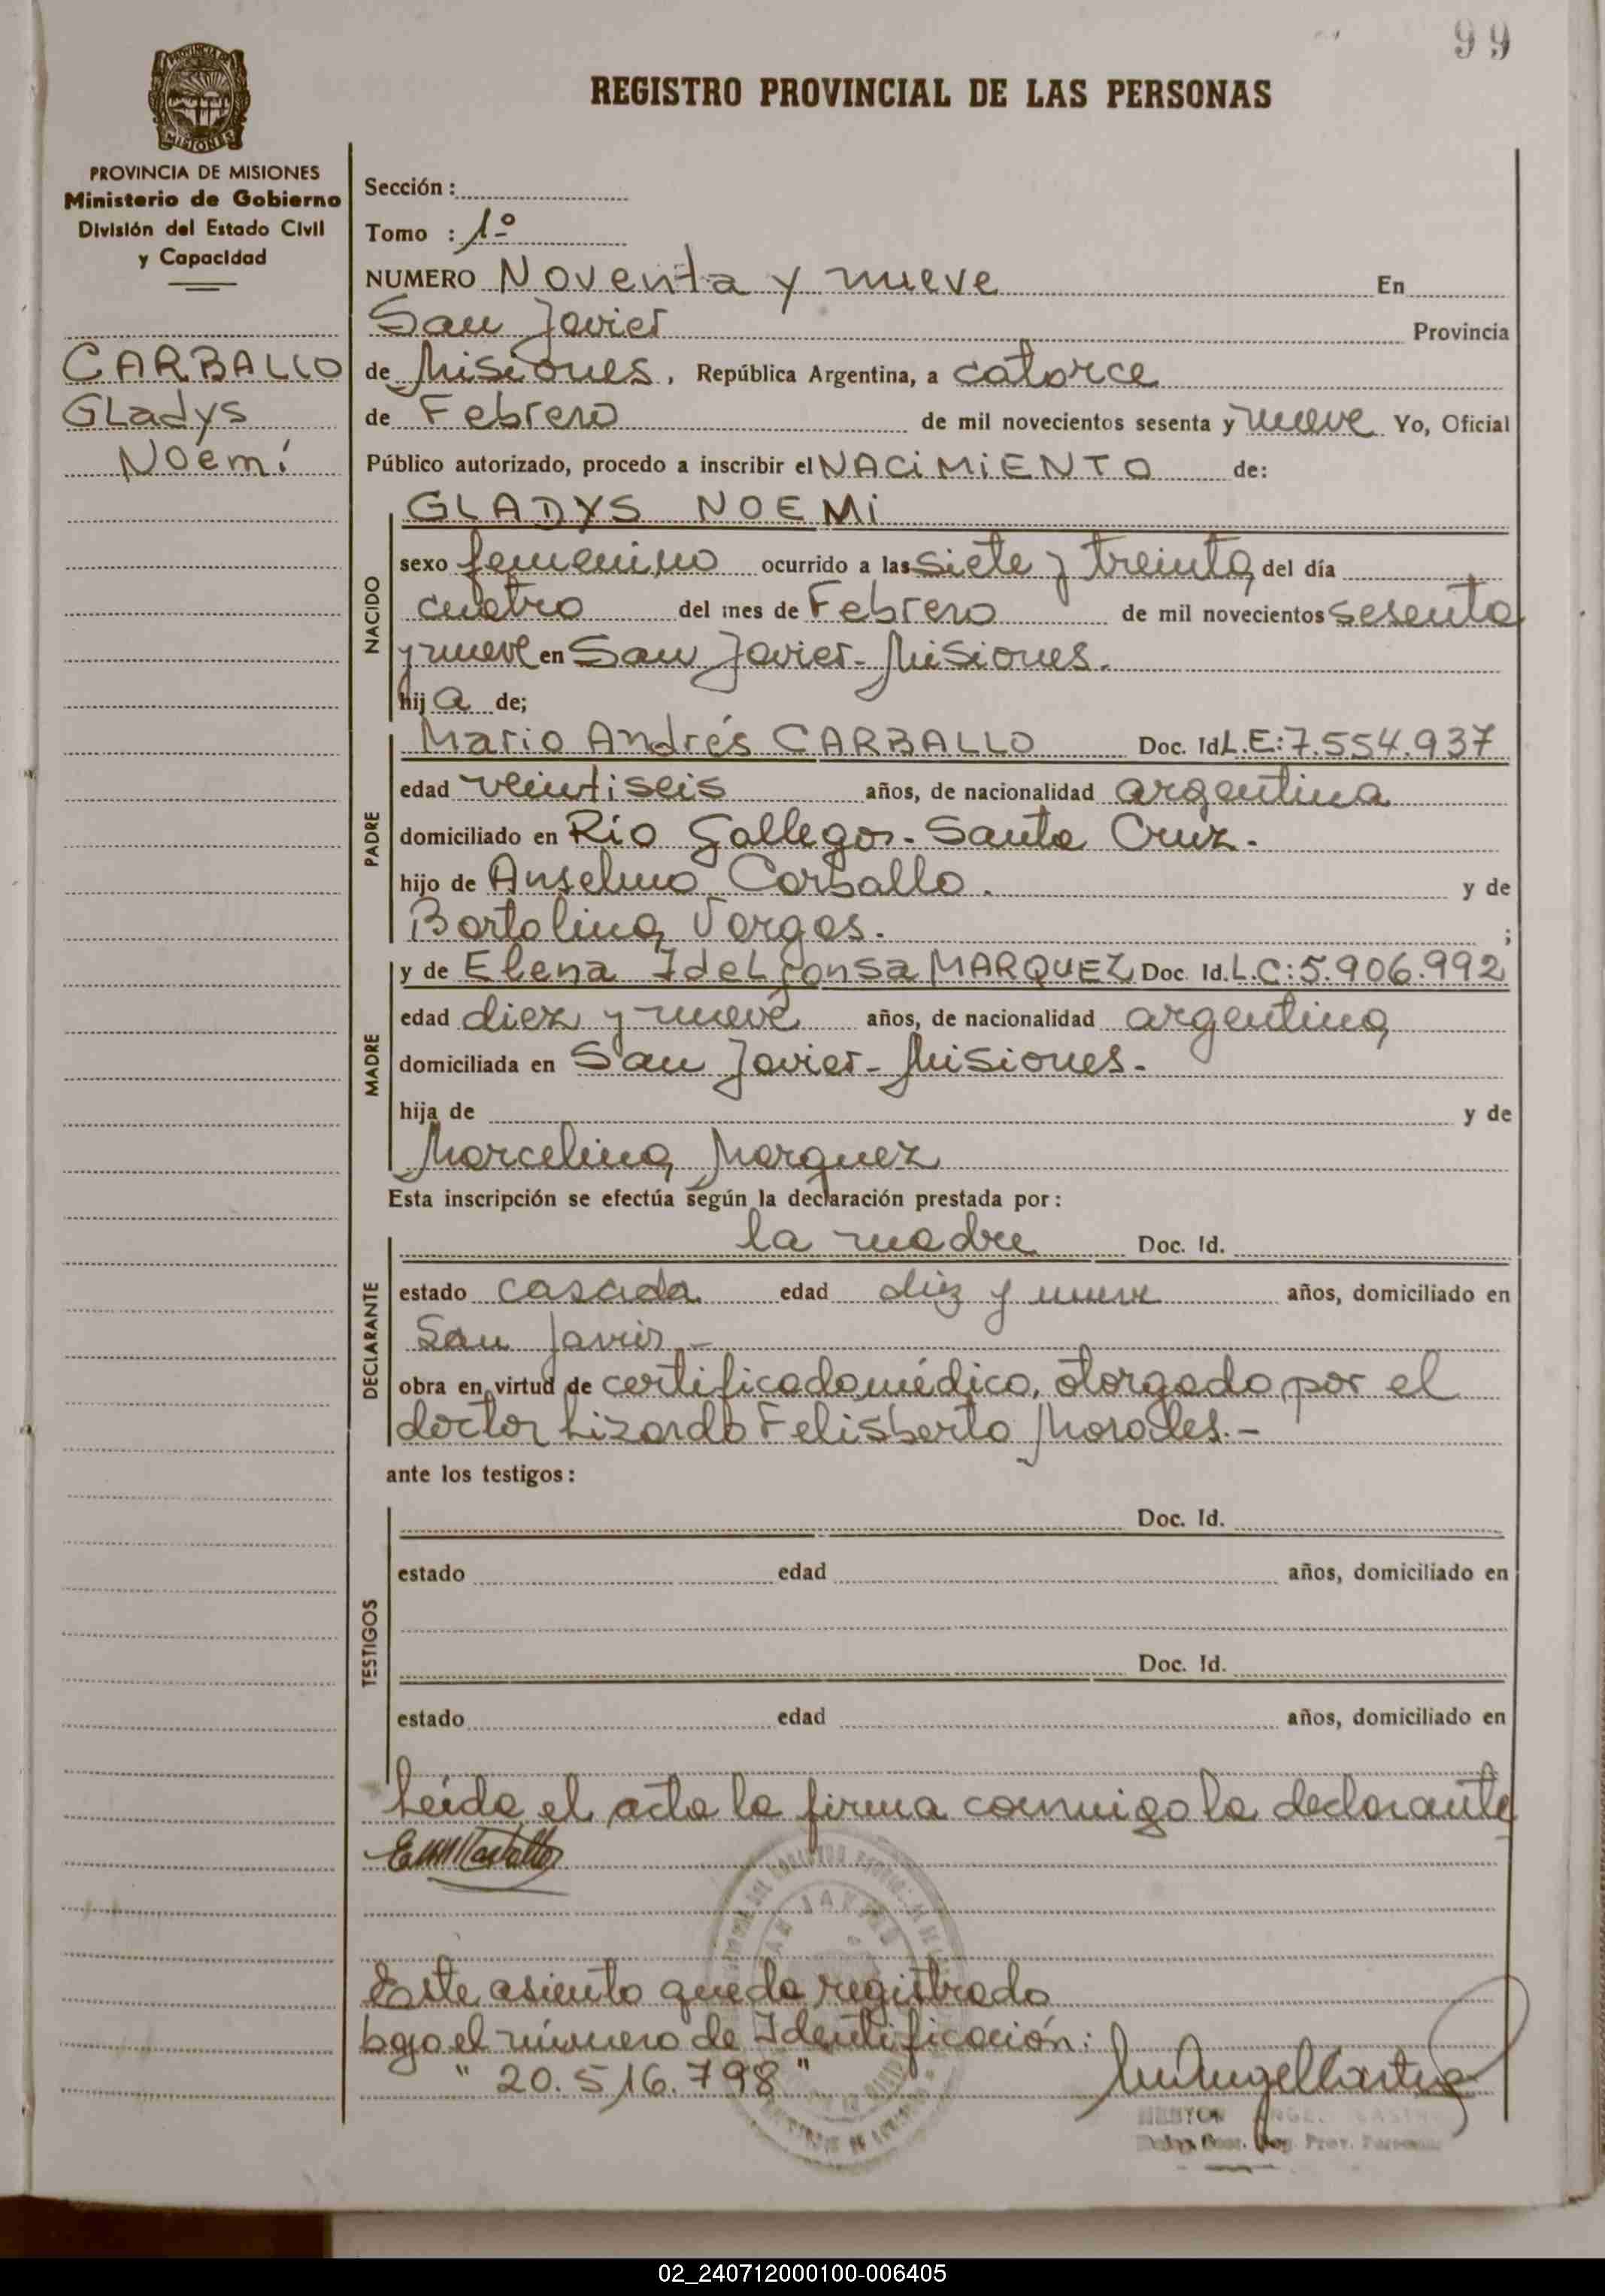 99
REGISTRO PROVINCIAL DE LAS PERSONAS
MISIONES
PROVINCIA DE MISIONES
Ministerio de Gobierno
División del Estado Civil
y Capacidad
CARBALLO
Gladys
Noemí
Sección :
Tomo : 1º
NUMERO Noventa y nueve En
San Javier Provincia
de Misiones, República Argentina, a catorce
de Febrero de mil novecientos sesenta y nueve Yo, Oficial
Público autorizado, procedo a inscribir el NACIMIENTO de:
NACIDO
GLADYS NOEMI
sexo femenino ocurrido a las siete y treinta del día
cuatro del mes de Febrero de mil novecientos sesenta
y nueve en San Javier - Misiones.
hij a de;
PADRE
Mario Andrés CARBALLO Doc. Id. L.E: 7.554.937
edad veintiseis años, de nacionalidad argentina
domiciliado en Río Gallegos - Santa Cruz.
hijo de Anselmo Carballo. y de
Bartolina Vargas. ;
MADRE
y de Elena Idelfonsa MARQUEZ Doc. Id. L.C: 5.906.992
edad diez y nueve años, de nacionalidad argentina
domiciliada en San Javier - Misiones.
hija de y de
Marcelina Marquez
Esta inscripción se efectúa según la declaración prestada por :
DECLARANTE
la madre Doc. Id.
estado casada edad diez y nueve años, domiciliado en
San Javier -
obra en virtud de certificado médico, otorgado por el
doctor Lizardo Felisberto Morales. -
ante los testigos :
TESTIGOS
Doc. Id.
estado edad años, domiciliado en
Doc. Id.
estado edad años, domiciliado en
Leída el acta la firma conmigo la declarante
Este asiento queda registrado
bajo el número de Identificación:
" 20.516.798 "
02_240712000100-006405